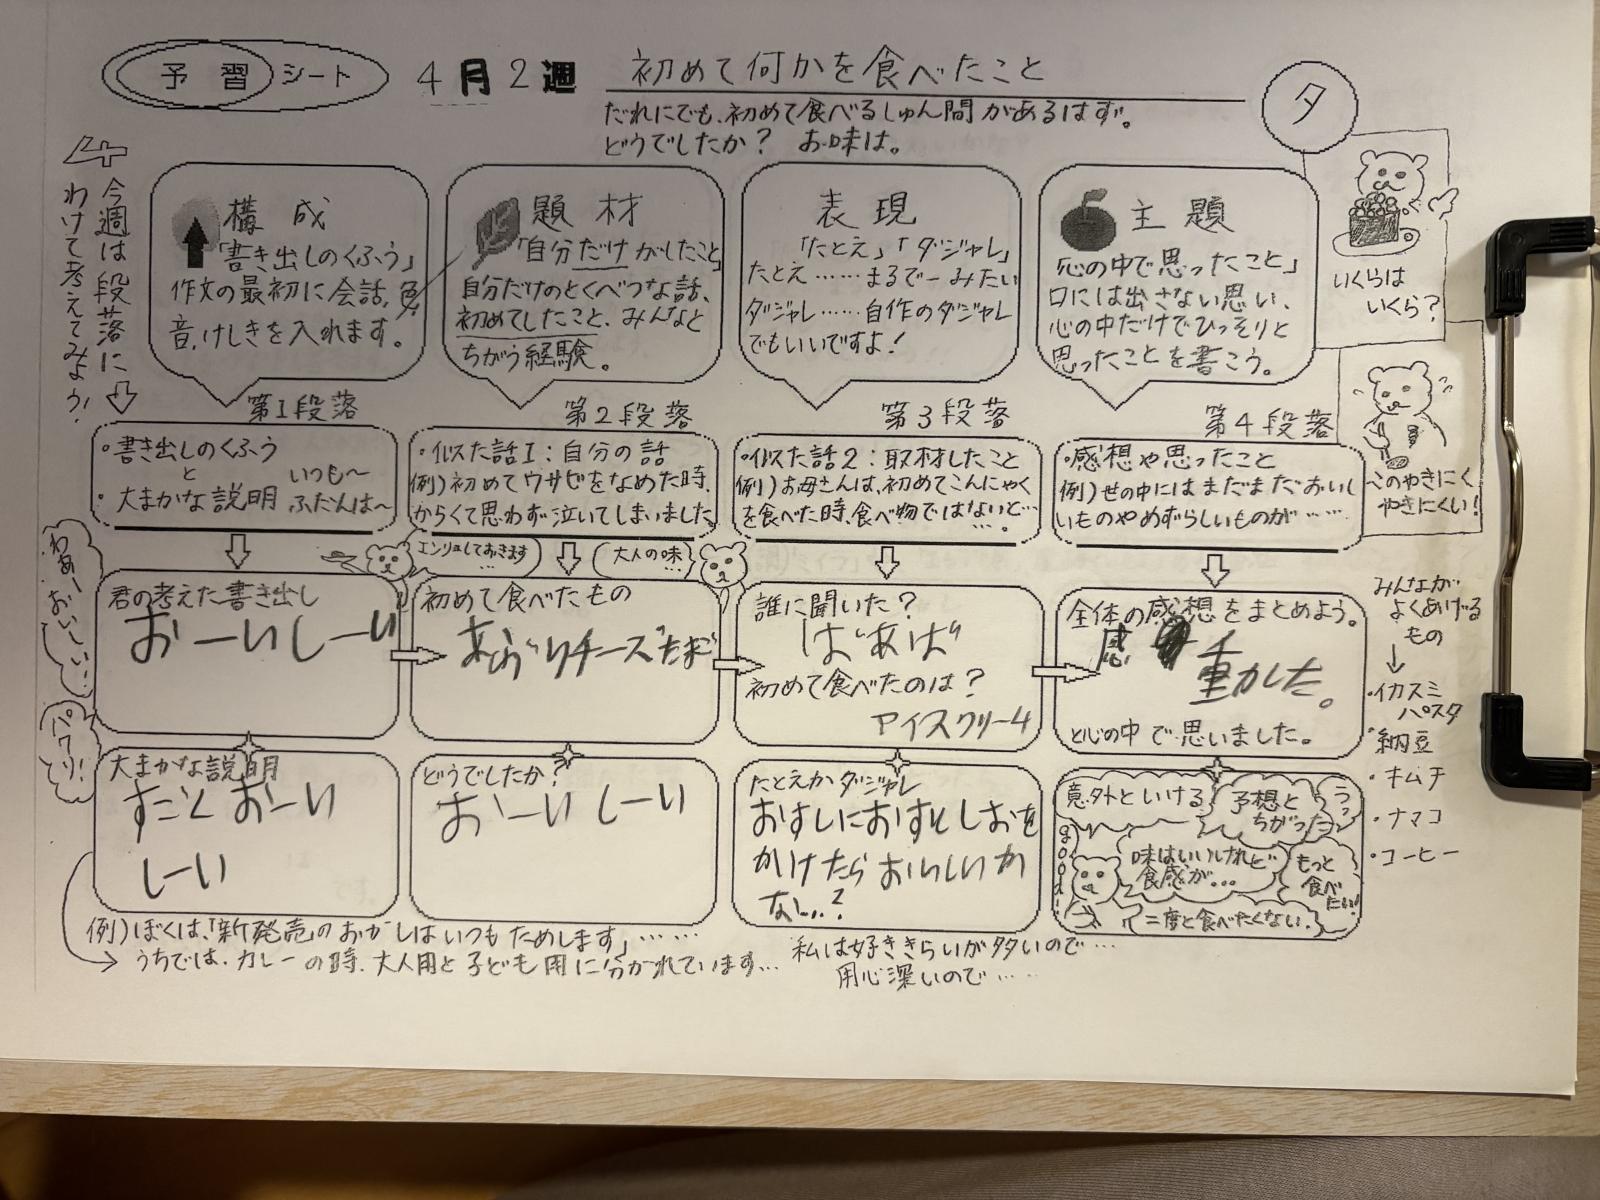 予習シート
4月2週
初めて何かを食べたこと
だれにでも、初めて食べるしゅん間があるはず。
どうでしたか? お味は。
タ
今週は段落に
わけて考えてみよう!
構成
「書き出しのくふう」
作文の最初に会話、
音、けしきを入れます。
題材
「自分だけがしたこと」
自分だけのとくべつな話、
初めてしたこと、みんなと
ちがう経験。
表現
「たとえ」「ダジャレ」
たとえ……まるで―みたい
ダジャレ……自作のダジャレ
でもいいですよ!
主題
「心の中で思ったこと」
口には出さない思い、
心の中だけでひっそりと
思ったことを書こう。
いくらは
いくら?
このやきにく
やきにくい!
第1段落
・書き出しのくふう
と
・大まかな説明
いつも~
ふだんは~
第2段落
・似た話1:自分の話
例)初めてワサビをなめた時、
からくて思わず泣いてしまいました。
第3段落
・似た話2:取材したこと
例)お母さんは、初めてこんにゃく
を食べた時、食べ物ではないと…
第4段落
・感想や思ったこと
例)世の中にはまだまだおいし
いものやめずらしいものが……
わあーおいしい…
パクリ!
大人の味…
君の考えた書き出し
おーいしーい
初めて食べたもの
あぶりチーズだお
誰に聞いた?
ばあば
初めて食べたのは?
アイスクリーム
全体の感想をまとめよう。
感動した。
と心の中で思いました。
大まかな説明
すごくおーい
しーい
どうでしたか?
おーいしーい
たとえかダジャレ
おすしにおすとしおを
かけたらおいしいか
な…?
意外といける
予想と
ちがった
うっ
good!
味はいいけれど
食感が…
もっと
食べ
たい!
二度と食べたくない。
みんなが
よくあげる
もの
・イカスミ
パスタ
・納豆
・キムチ
・ナマコ
・コーヒー
例)ぼくは、「新発売」のおかしはいつもためします」……
うちでは、カレーの時、大人用と子ども用に分かれています…
私は好ききらいが多いので…
用心深いので……